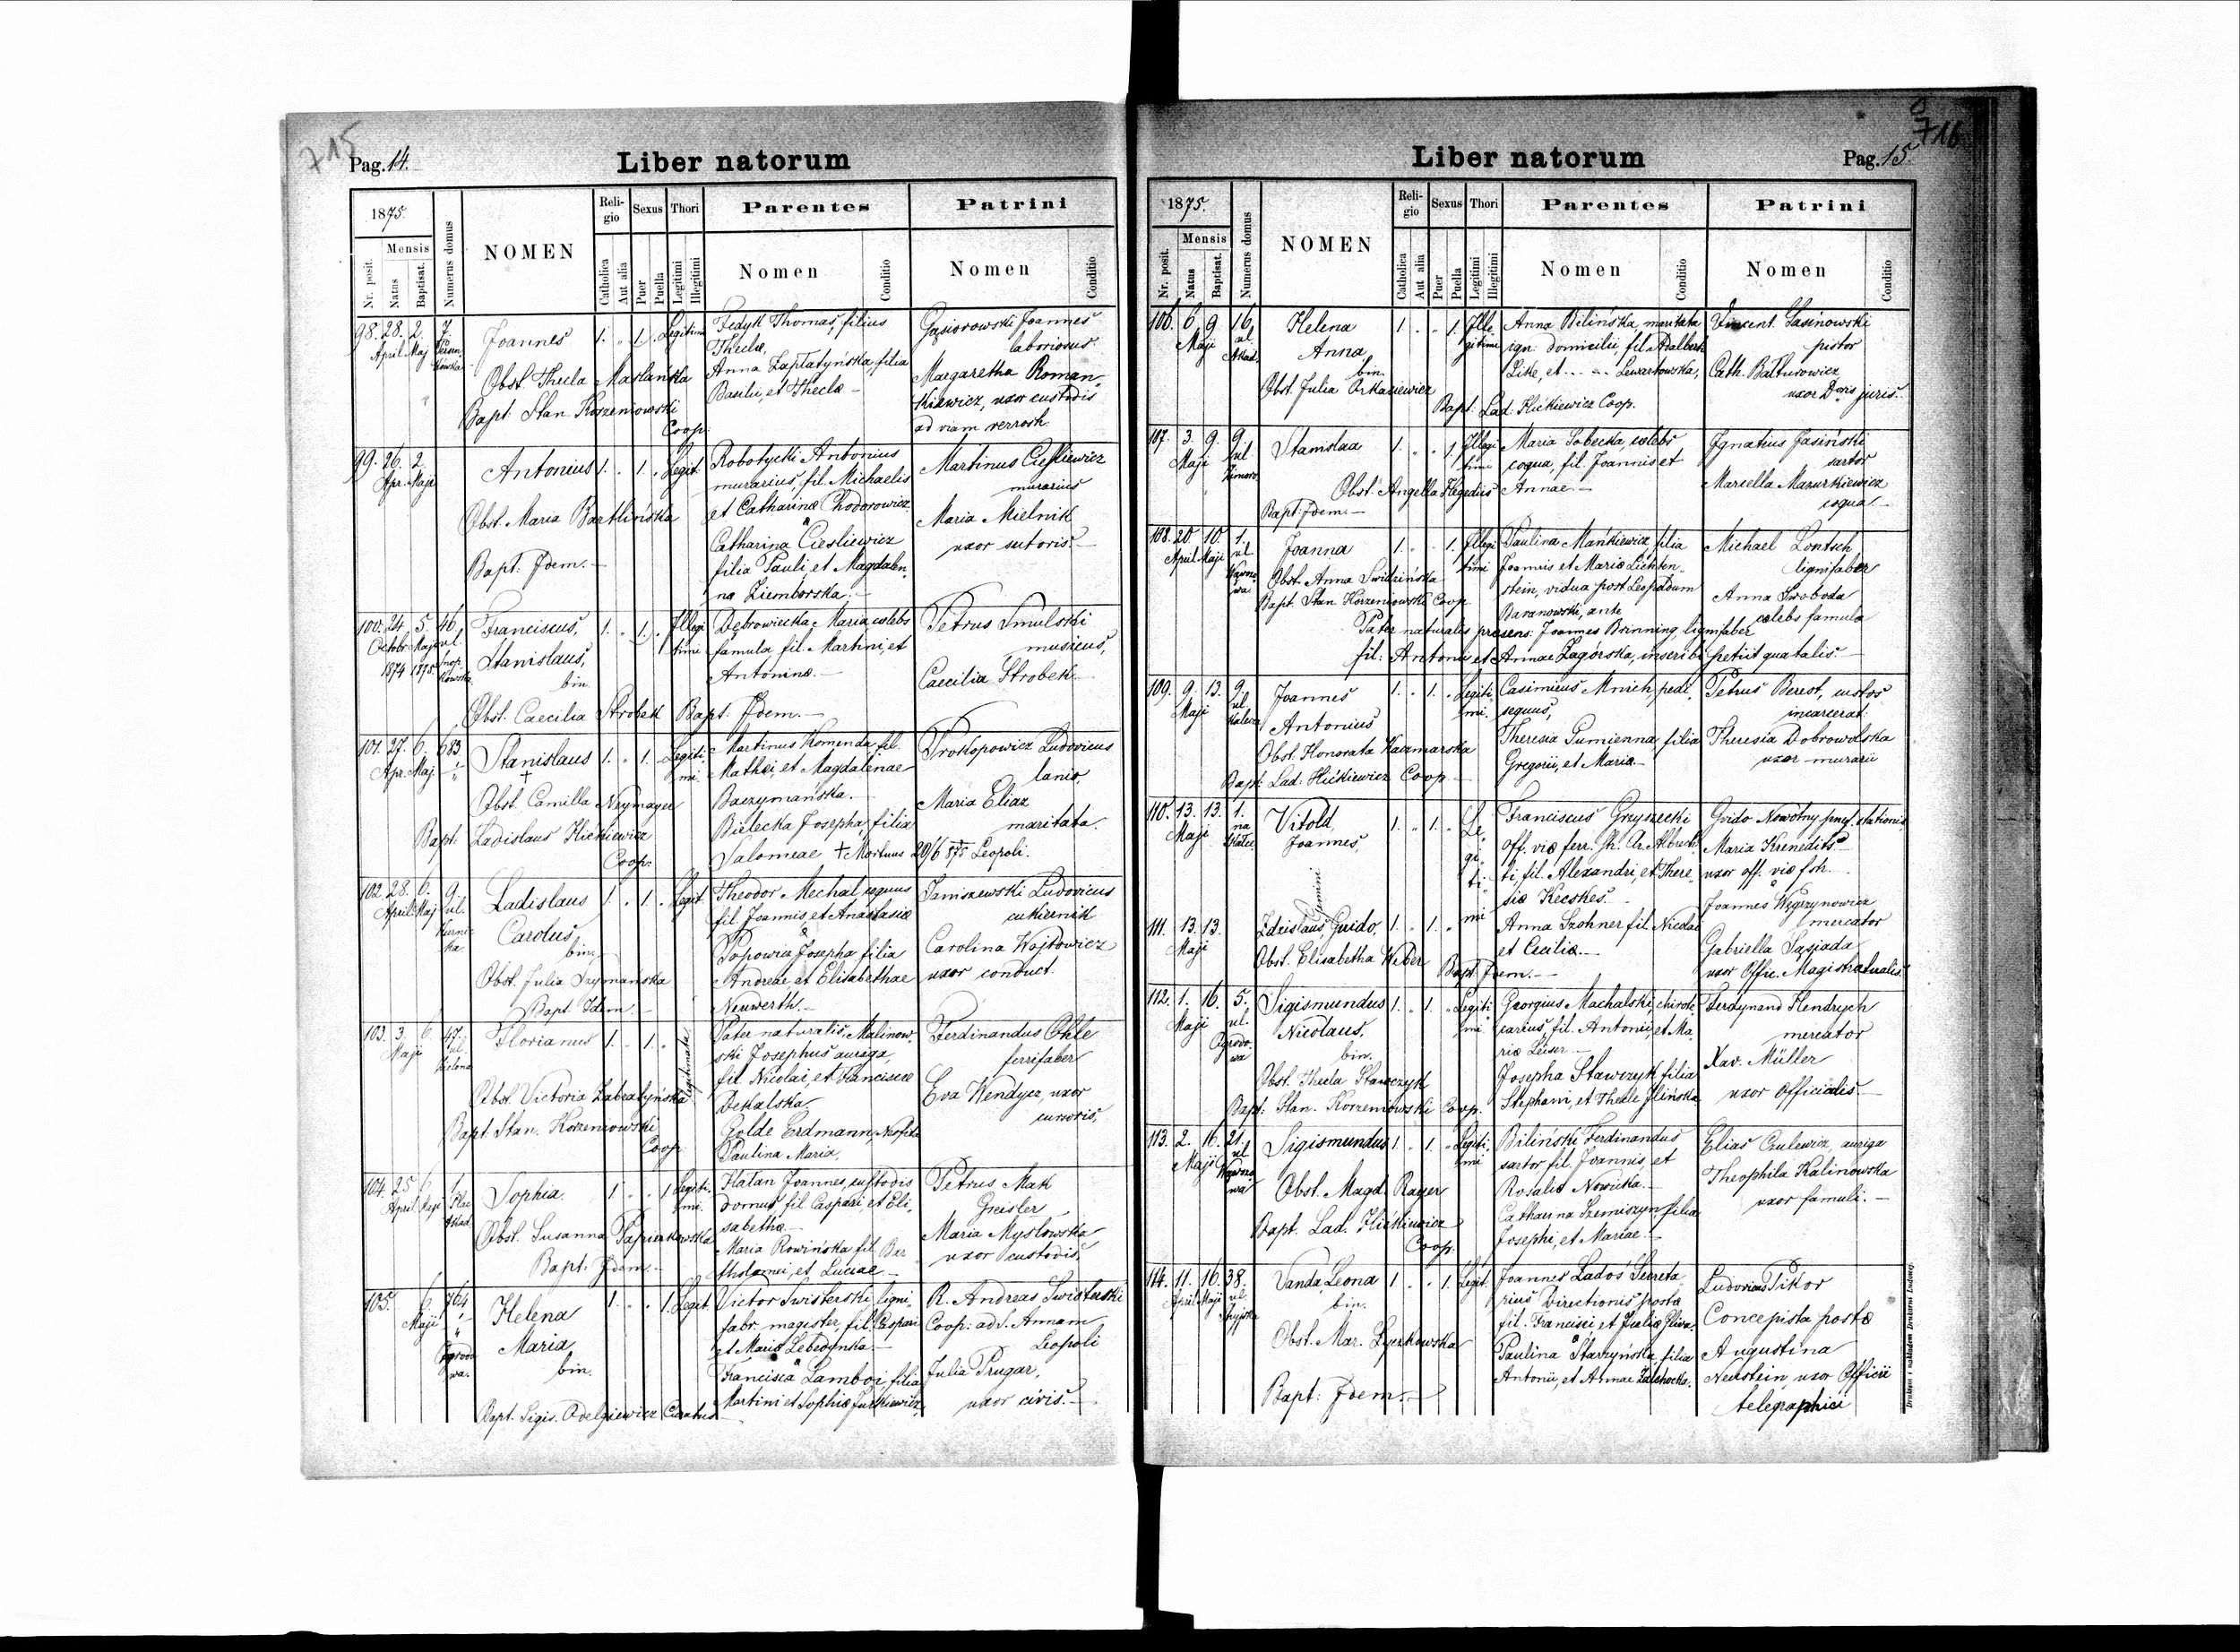 715
Pag. 14.
Liber natorum
1875.
Mensis
Nr. posit.
Natus
Baptisat.
Numerus domus
NOMEN
Religio
Catholica
Aut alia
Sexus
Puer
Puella
Thori
Legitimi
Illegitimi
Parentes
Nomen
Conditio
Patrini
Nomen
Conditio
98. 28. 2. 7.
April Maj
Joannes
1. " 1. " Legitimi
Obst. Thecla Maslanka
Bapt. Stan. Korzeniowski
Coop.
Fedyk Thomas, filius
Theclæ,
Anna Zaplatyńska filia
Basilii, et Theclæ
Gąsiorowski Joannes
laboriosus.
Margaretha Roman-
kiewicz, uxor custodis
ad viam
99. 26. 2.
Apr. Maji
Antonius
1. " 1. " Legit.
Obst. Maria Bartlińska
Bapt. Idem.
Robotycki Antonius
murarius, fil. Michaelis
et Catharinæ Chodorowicz
Catharina Ciesliewicz
filia Pauli, et Magdale-
na Ziemborska.
Martinus Ciesliewicz
murarius
Maria Mielnik
uxor sutoris.
100. 24. 5. 46.
Octobr. Maji ul.
1874 1875.
Franciscus,
Stanislaus,
bin.
1. " 1. " Illegitimi
Obst. Caecilia Strobek Bapt. Idem.
Dębrowiecka Maria cælebs
famula fil. Martini, et
Antoninæ.
Petrus Smulski
musicus,
Caecilia Strobek
101. 27. 6. 683
Apr. Maj.
Stanislaus
+
1. " 1. " Legitimi
Obst. Camilla Neymayer
Bapt: Ladislaus Hickiewicz
Coop.
Martinus Komenda fil.
Mathæi, et Magdalenae
Baczymańska.
Bielecka Josepha, filia
Salomeae + Mortuus 20/6 875 Leopoli.
Prokopowicz Ludovicus
lanio,
Maria Eliaz
maritata.
102. 28. 6. 9.
April. Maj ul.
Ladislaus
Carolus
bin.
1. " 1. " Legit.
Obst. Julia Szymańska
Bapt. Idem.
Theodor Mechal coquus
fil. Joannis, et Anastasiæ
Popowicz Josepha filia
Andreae et Elisabethae
Neuwerth.
Janiszewski Ludovicus
cukiernik
Carolina Wojtowicz
uxor conduct.
103. 3. 6. 47.
Maji ul.
Zielona
Florianus
1. " 1. "
Legitimatus
Obst. Victoria Zabratyńska
Bapt Stan. Korzeniowski
Coop
Pater naturalis, Malinow-
ski Josephus auriga,
fil. Nicolai, et Fancisce
Dekalska
Golde Erdmann, Neofita
Paulina Maria,
Ferdinandus Ohle
ferrifaber
Eva Wendycz, uxor
cursoris,
104. 25 6 1.
April Maji Plac
Akad.
Sophia
1 " " 1 Legitimi.
Obst. Susanna Papierkowska
Bapt: Idem.
Hatan Joannes, custodis
domus, fil. Caspari, et Eli-
sabethæ
Maria Rowińska fil. Bar
tholomei, et Luciae
Petrus Mak
Greisler
Maria Myslowska,
uxor custodis,
105. 6 764
Maji
Ogrodowa.
Helena
Maria
bin.
1. " " 1. Legit.
Bapt. Sigis. Odelgiewicz Curatus
Victor Swisterski, ligni-
fabr. magister, fil. Caspari
et Mariæ Lebedynka.
Francisca Lamboi filia
Martini et Sophiæ Jurkiewicz
R. Andreas Swisterski
Coop: ad S. Annam
Leopoli
Julia Prugar,
uxor civis.
716
Pag. 15.
Liber natorum
1875.
Mensis
Nr. posit.
Natus
Baptisat.
Numerus domus
NOMEN
Religio
Catholica
Aut alia
Sexus
Puer
Puella
Thori
Legitimi
Illegitimi
Parentes
Nomen
Conditio
Patrini
Nomen
Conditio
106. 6 9 16.
Maji ul.
Akad.
Helena
Anna
bin.
1 " " 1. Illegitimi
Obst. Julia Arkasiewicz
Bapt: Lad: Hickiewicz Coop.
Anna Bilińska, maritata
ign: domicilii, fil. Adalberti
Like, et - - Lewartowska,
Vincent. Lasinowski
pistor
Cath. Balturowicz,
uxor Dris juris.
107. 3. 9. 9.
Maji ul.
Stanislaa
1. " " 1. Illegitimi
Obst. Angella Hegedüs
Bapt. Idem.
Maria Sobecka, cælebs
coqua, fil. Joannis et
Annae
Ignatius Jasiński
sartor
Marcella Mazurkiewicz
coqua.
108. 20 10. 1.
April. Maji ul.
Joanna
1. " " 1. Illegitimi
Obst. Anna Swidzińska
Bapt. Stan Korzeniowski Coop
Paulina Mańkiewicz filia
Joannis et Mariæ Lichten-
stein, vidua post Leopoldum
Baranowski, ante
Pater naturalis præsens: Joannes Brinning lignifaber
fil: Antonii et Annae Zagórska, inscribi petiit qua talis.
Michael Lontsch
lignifaber
Anna Swoboda
cælebs famula
109. 9. 13. 9.
Maji ul.
Joannes
Antonius
1. " 1. " Legitimi.
Obst. Honorata Kaczmarska
Bapt. Lad: Hickiewicz Coop.
Casimirus Mnich, pedi-
sequus,
Theresia Gumienna, filia
Gregorii, et Maria
Petrus Berest, custos
incarcerat.
Theresia Dobrowolska
uxor murarii
110. 13. 13. 1.
Maji na
Vitold,
Joannes,
1. " 1. " Legitimi
Gemini
Franciscus Gryszecki
off. viæ ferr. Gh. Ar. Albrech-
ti, fil. Alexandri, et There-
siæ Kecskes.
Gvido Nowotny præf. stationis
Maria Krenedits
uxor off. viæ fer.
111. 13. 13.
Maji
Zdzislaus, Guido.
1. " 1. "
Obst. Elisabetha Weber
Bapt. Idem.
Anna Szohner fil. Nicolai
et Ceciliæ.
Joannes Węgrzynowicz
mercator
Gabriella Sąsiada
uxor Offic. Magistratualis.
112. 1. 16. 5.
Maji ul.
Ogrodowa
Sigismundus
Nicolaus,
bin.
1. " 1. " Legitimi
Obst. Thecla Stawczyk
Bapt: Stan. Korzeniowski Coop.
Georgius Machalski, chirote-
carius, fil. Antonii, et Ma-
riæ Leiser
Josepha Stawczyk, filia
Stephani, et Theclæ Ilińska
Ferdynand Hendrych
mercator
Xav. Müller
uxor Officialis.
113. 2. 16. 21.
Maji ul
Sigismundus
1. " 1. " Legitimi
Obst. Magd. Rayer
Bapt. Lad. Hickiewicz
Coop.
Biliński Ferdinandus
sartor fil. Joannis, et
Rosaliæ Nowicka.
Catharina Szemiszyn filia
Josephi, et Mariae.
Elias Czulewicz, auriga
Theophila Kalinowska
uxor famuli.
114. 11. 16. 38.
April. Maji ul
Vanda, Leona
bin.
1 " " 1. Legit.
Obst. Mar. Lyczkowska
Bapt: Idem.
Joannes Lados Secreta-
rius Directionis postæ
fil. Francisci et Juliæ
Paulina Starzyńska, filia
Antonii, et Annae Zalchocka.
Ludovicus Pikor
Concepista postæ
Augustina
Neustein, uxor Officii
telegraphici
Drukiem i nakładem Drukarni Ludowej.